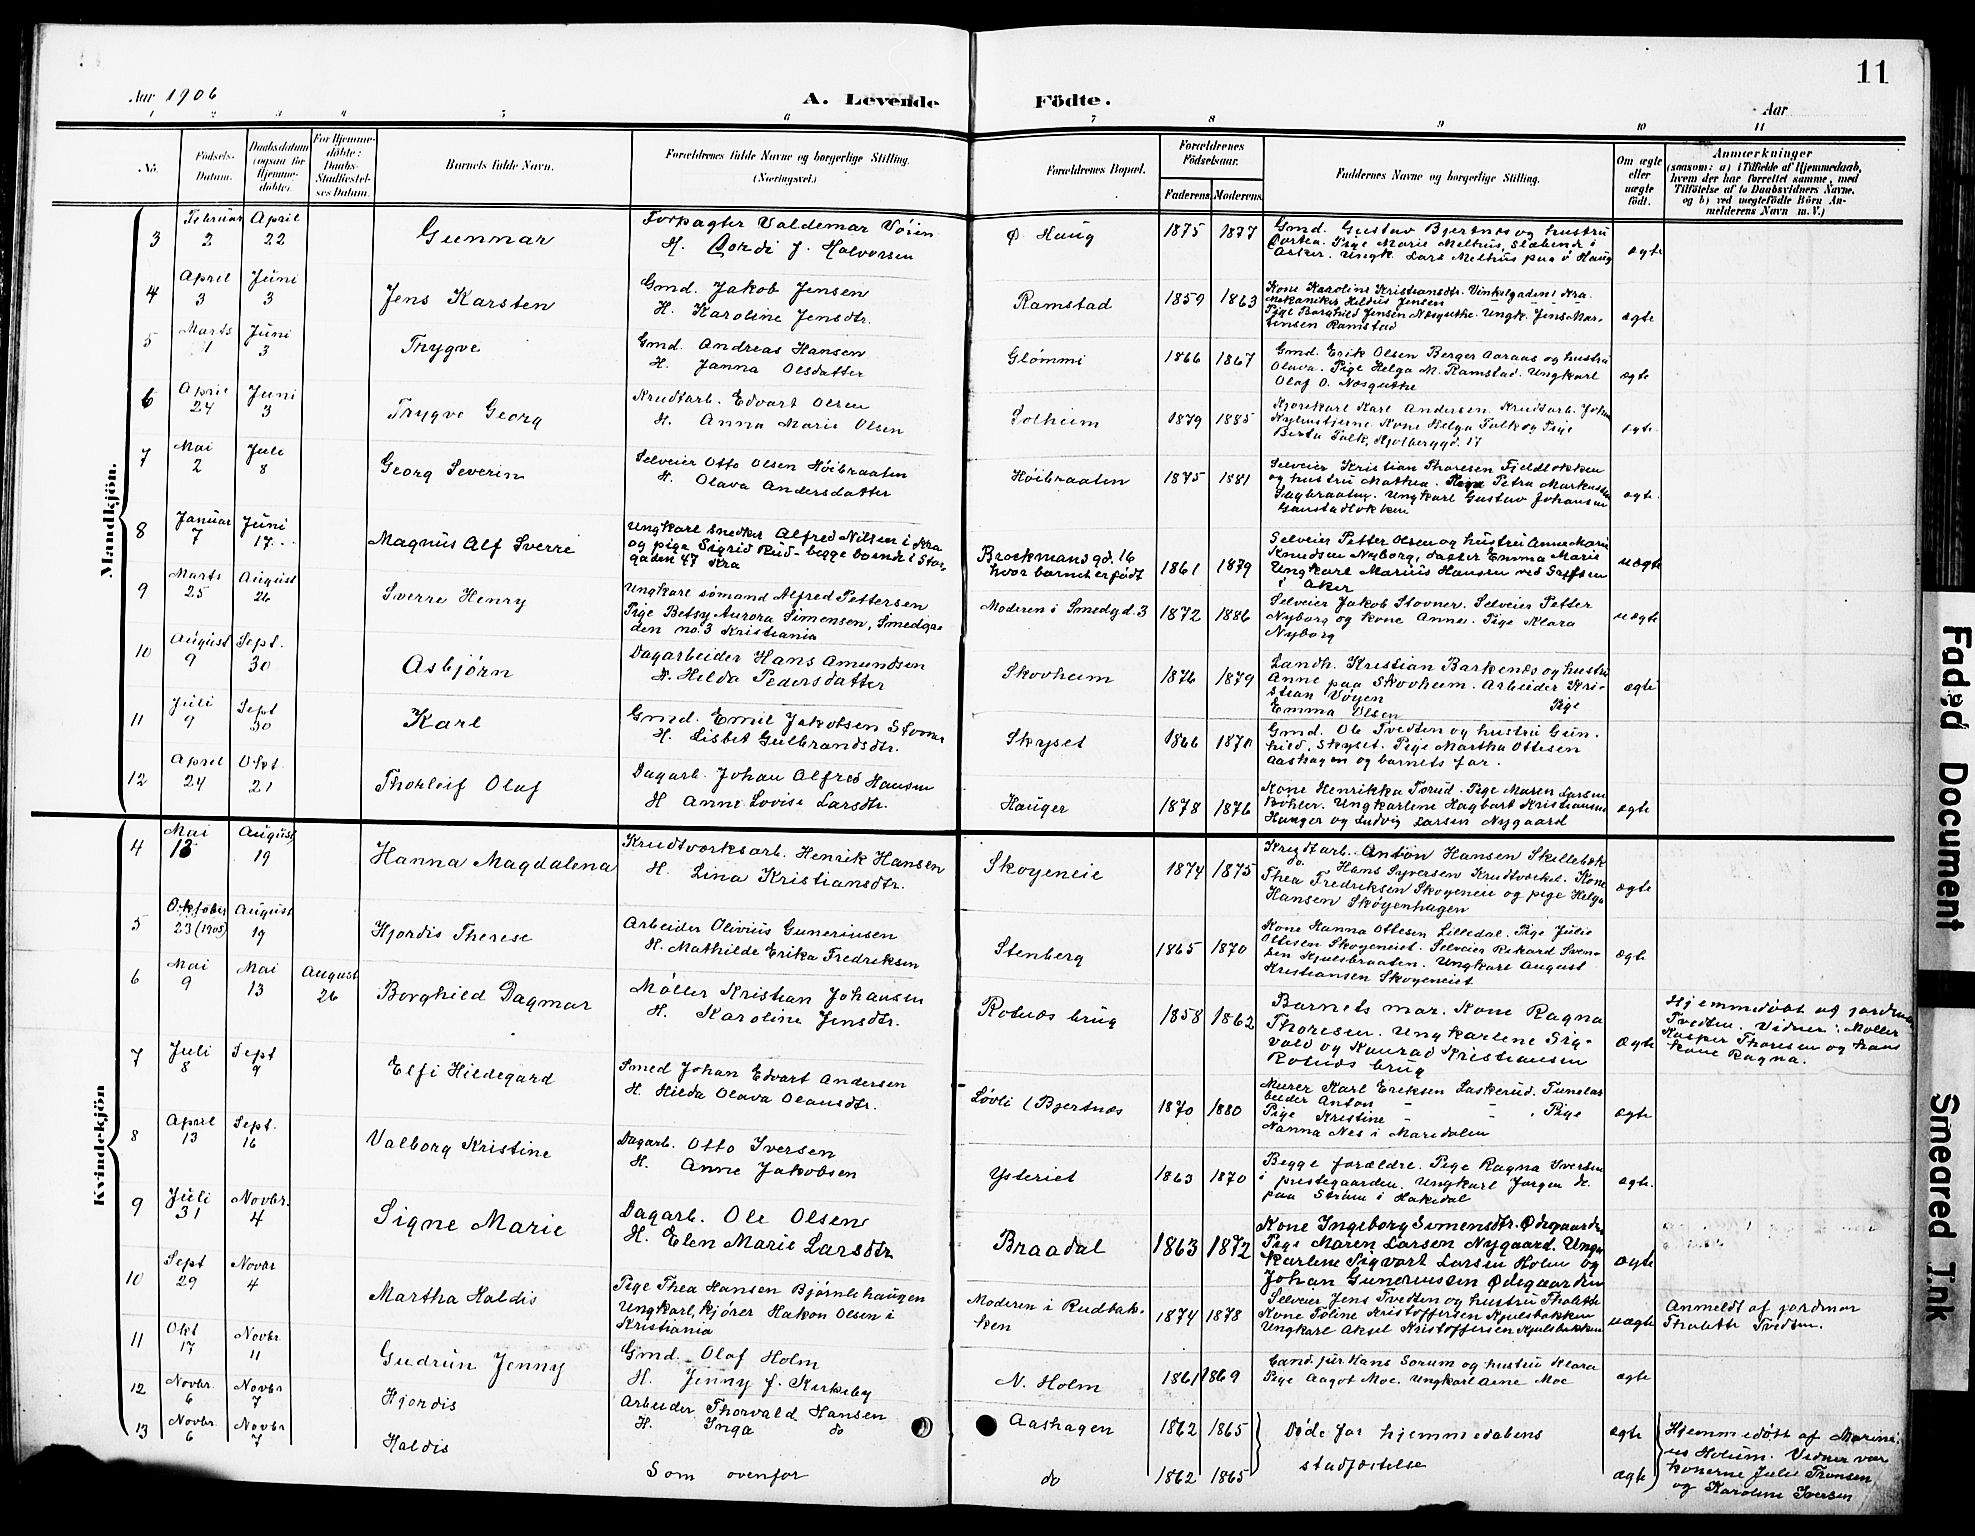 11
Aar 1906
A. Levende Födte.
Aar
1 2 3 4 5 6 7 8 9 10 11
No.
Födsels-Datum.
Daabsdatum (ogsaa for Hjemmedöbte).
For Hjemmedöbte: Daabs-Stadfæstelses Datum.
Barnets fulde Navn.
Forældrenes fulde Navne og borgerlige Stilling. (Næringsvei.)
Forældrenes Bopæl.
Forældrenes Födselsaar.
Faderens. Moderens.
Faddernes Navne og borgerlige Stilling.
Om ægte eller uægte födt.
Anmærkninger
(saasom: a) i Tilfælde af Hjemmedaab, hvem der har forrettet samme, med Tilföielse af to Daabsvidners Navne, og b) ved uægtefödte Börn Anmelderens Navn m. V.)
Mandkjön.
3 Februar 2 April 22 Gunnar Forpagter Valdemar Vöien
H. Hordi J. Halvorsen Ø. Haug 1875 1877 Gmd. Gustav Bjertnæs og hustru
Dortea. Pige Marie Melhus, Slæbende i
Asker. Ungk. Lars Melhus paa ø Haug ægte
4 April 3 Juni 3 Jens Karsten Gmd. Jakob Jensen
H. Karoline Jensdtr. Ramstad 1859 1863 Kone Karoline Kristiansdtr. Vinkelgaden i Kra.
mekaniker Heldus Jensen
Pige Borghild Jensen Næsguthe. Ungk. Jens Mar-
tensen Ramstad ægte
5 Marts 1 Juni 3 Thygve Gmd. Andreas Hansen
H. Janna Olsdatter Glömmi 1866 1867 Gmd. Erik Olsen Berger Aaraas og hustru
Olava. Pige Helga M. Ramstad. Ungkarl
Olaf O. Næsguthe ægte
6 April 24 Juni 3 Trygve Georg Krudtarb. Edvart Olsen
H. Anna Marie Olsen Solheim 1879 1885 Kjörekarl Karl Andersen. Krudtarb. Johan
Kylenstjerne. Kone Helga Falk og Pige
Berta Falk, Kjolberggd. 17 ægte
7 Mai 2 Juli 8 Georg Severin Selveier Otto Olsen Höibraaten
H. Olava Andersdatter Höibraaten 1875 1881 Selveier Kristian Thoresen Fjeldlökken
og hustru Mathea. Pige Petra Markussen
Sagbraaten. Ungkarl Gustav Johansen
Ganstadlökken ægte
8 Januar 7 Juni 17 Magnus Alf Sverre Ungkarl snedker Alfred Nilsen i Kra
og pige Sigrid Rud - begge boende i Stor
gaden 47 Kra Brockmansgd. 16
hvor barnet er födt 1861 1879 Selveier Petter Olsen og hustru Anne Marie
Knudsen Nyborg, datter Emma Marie
Ungkarl Marius Hansen ved
i Aker uægte
9 Marts 25 August 26 Sverre Henry Ungkarl sömand Alfred Pettersen
Pige Betsy Aurora Simensen, Smedga-
den no. 3 Kristiania Moderen i Smedgd. 3 1872 1886 Selveier Jakob Stovner. Selveier Petter
Nyborg og kone Anne. Pige Klara
Nyborg uægte
10 August 9 Sept. 30 Asbjörn Dagarbeider Hans Amundsen
H. Hilda Pedersdatter Skovheim 1876 1879 Landh. Kristian Barkenæs og hustru
Anne paa Skovheim. Arbeider Kri-
stian Vöyen Pige
Emma Olsen ægte
11 Juli 9 Sept 30 Karl Gmd. Emil Jakobsen Stovner
H. Lisbet Gulbrandsdtr. Skyset 1866 1870 Gmd. Ole Tvedten og hustru Gun-
hild, Skyset. Pige Martha Ottesen
Aashagen og barnets far. ægte
12 April 24 Okt. 21 Thorleif Olaf Dagarb. Johan Alfred Hansen
H. Anne Lovise Larsdtr. Hauger 1878 1876 Kone Henrikka Torud. Pige Maren Larsen
Böhler. Ungkarlene Hagbart Kristiansen
Hauger og Ludvig Larsen Nygaard ægte
Kvindekjön
4 Mai 13 August 19 Hanna Magdalena Krudtværksarb. Henrik Hansen
H. Lina Kristiansdtr. Skoyeneie 1874 1875 Krudtarb. Anton Hansen Skillebæk
do Hans Syversen Krudtværket. Kone
Thea Fredriksen Skoyeneie og pige Helga
Hansen Skøyenhagen ægte
5 Oktober 23 (1905) August 19 Hjordis Therese Arbeider Olivius Gunerinsen
H. Mathilde Erika Fredriksen Stenberg 1865 1870 Kone Hanna Ottesen Lilledal. Pige Julie
Ottesen Skoyeneiet. Selveier Rikard Sven-
sen Kjulsbraaten. Ungkarl August
Kristiansen Skoyeneiet ægte
6 Mai 9 Mai 13 August 26 Borghild Dagmar Møller Kristian Johansen
H. Karoline Jensdtr. Rotnæs brug 1858 1862 Barnets mor. Kone Ragna
Thoresen. Ungkarlene Sig-
vald og Konrad Kristiansen
Rotnæs brug ægte Hjemmedöbt af jordmor
Tvedten. Vidner: Møller
Kasper Thoresen og hans
kone Ragna.
7 Juli 8 Sept 9 Elfi Hildegard Smed Johan Edvart Andersen
H. Hilda Olava Olausdtr. Lövli (Bjertnæs 1870 1880 Murer Karl Eriksen Laskerud. Tunelar
beider Anton - -
Pige Kristine - - Pige
Nanna Nes i Maridalen ægte
8 April 13 Sept. 16 Valborg Kristine Dagarb. Otto Iversen
H. Anne Jakobsen Ysteriet 1863 1870 Begge forældre. Pige Ragna Iversen
i prestegaarden. Ungkarl Jörgen do.
paa Ström i Hakedal ægte.
9 Juli 31 Novbr. 4 Signe Marie Dagarb. Ole Olsen
H. Elen Marie Larsdtr Braadal 1863 1872 Kone Ingeborg Simensdtr. Ødegaarden
Pige Maren Larsen Nygaard. Ung-
karlene Sigvart Larsen Holm og
Johan Gunerinsen Ødegaarden ægte
10 Sept 29 Novbr 4 Martha Haldis Pige Thea Hansen Bjørnlihaugen
Ungkarl, kjörer Hakon Olsen i
Kristiania Moderen i Rudbak-
ken 1874 1878 Selveier Jens Tvedten og hustru Thalette
Kone Toline Kristoffersen Kjulsbakken
Ungkarl Aksel Kristoffersen Kjulsbakken uægte Anmeldt af jordmor
Thalette Tvedten.
11 Okt 17 Novbr 11 Gudrun Jenny Gmd. Olaf Holm
H. Jenny J. Kirkeby N. Holm 1861 1869 Cand. jur Hans Sörum og hustru Klara
Pige Aagot Moe. Ungkarl Arne Moe ægte
12 Novbr. 6 Novbr 7 Hjordis Arbeider Thorvald Hansen
H. Inga do Aashagen 1862 1865 Döde för hjemmedaabens
stadfæstelse ægte Hjemmedöbt af Marine
us Holum. Vidner var
konerne Julie Tronsen
og Karoline Iversen
13 Novbr. 6 Novbr 7 Haldis Som ovenfor do 1862 1865 ægte
Faded Document
Smeared Ink